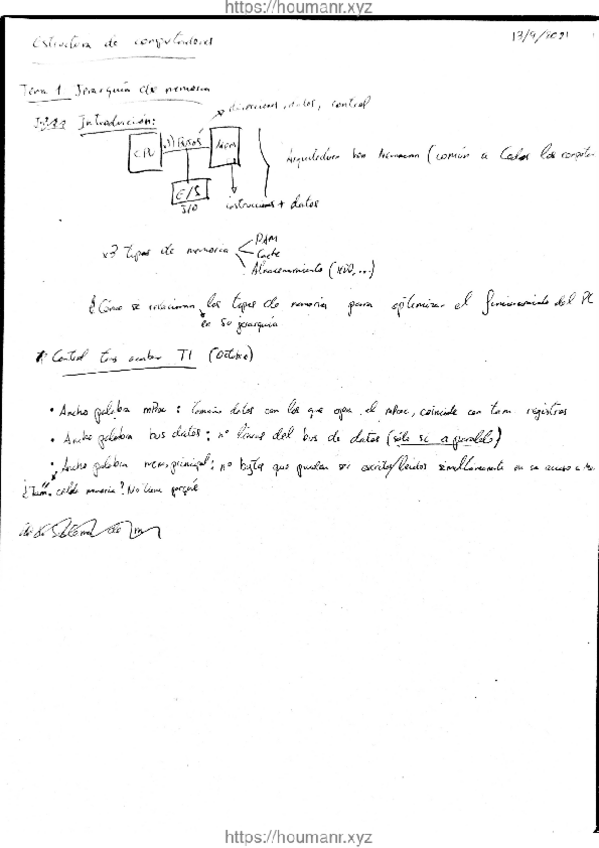 https://houmanr.xyz
Estructura de computadores
13/9/2021
Tema 1 Jerarquía de memoria
Introducción:
direcciones, datos, control
CPU
Buses
Mem
E/S
I/O
instrucciones + datos
Arquitectura Von Neumann (común a todos los computa
x3 tipos de memoria
RAM
Cache
Almacenamiento (HDD, ...)
¿Cómo se relacionan los tipos de memoria para optimizar el funcionamiento del PC
en su jerarquía
Control tras acabar T1 (Octubre)
• Ancho palabra mProc: tamaño datos con los que opera el mProc, coincide con tam registros
• Ancho palabra bus datos: nº líneas del bus de datos (sólo si a paralelo)
• Ancho palabra mem. principal: nº bytes que pueden ser escritos/leídos simultáneamente en un acceso a
¿Tam. celda memoria? No tiene porqué
https://houmanr.xyz